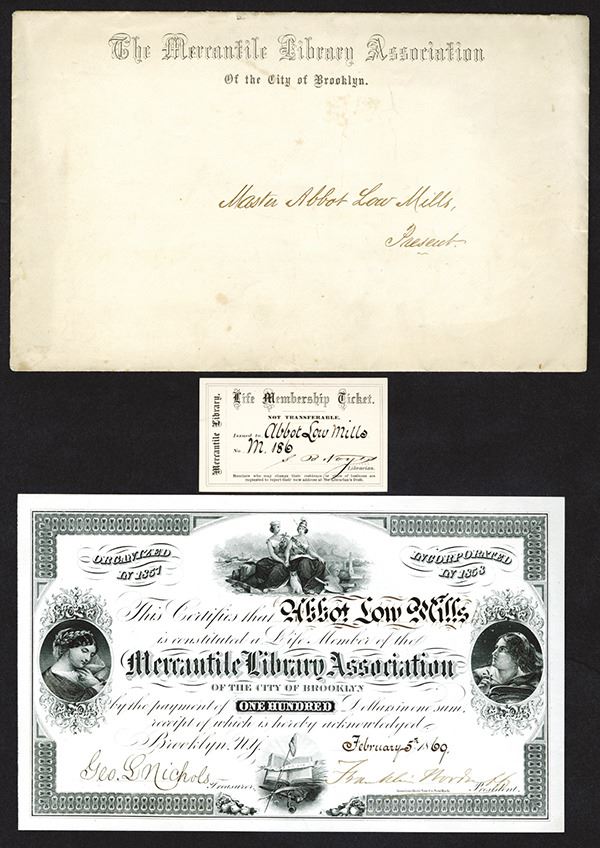 The Mercantile Library Association
Of the City of Brooklyn.
Master Abbot Low Mills,
Present.
Mercantile Library.
Life Membership Ticket.
NOT TRANSFERABLE.
Issued to Abbot Low Mills
No. M. 186
Librarian.
Members who may change their residence or place of business are
requested to report their new address at the Librarian's Desk.
ORGANIZED
IN 1857
INCORPORATED
IN 1858
This Certifies that Abbot Low Mills
is constituted a Life Member of the
Mercantile Library Association
OF THE CITY OF BROOKLYN
by the payment of ONE HUNDRED Dollars in one sum,
receipt of which is hereby acknowledged.
Brooklyn, N.Y. February 5th 1869.
Geo. L. Nichols Treasurer.
Franklin President.